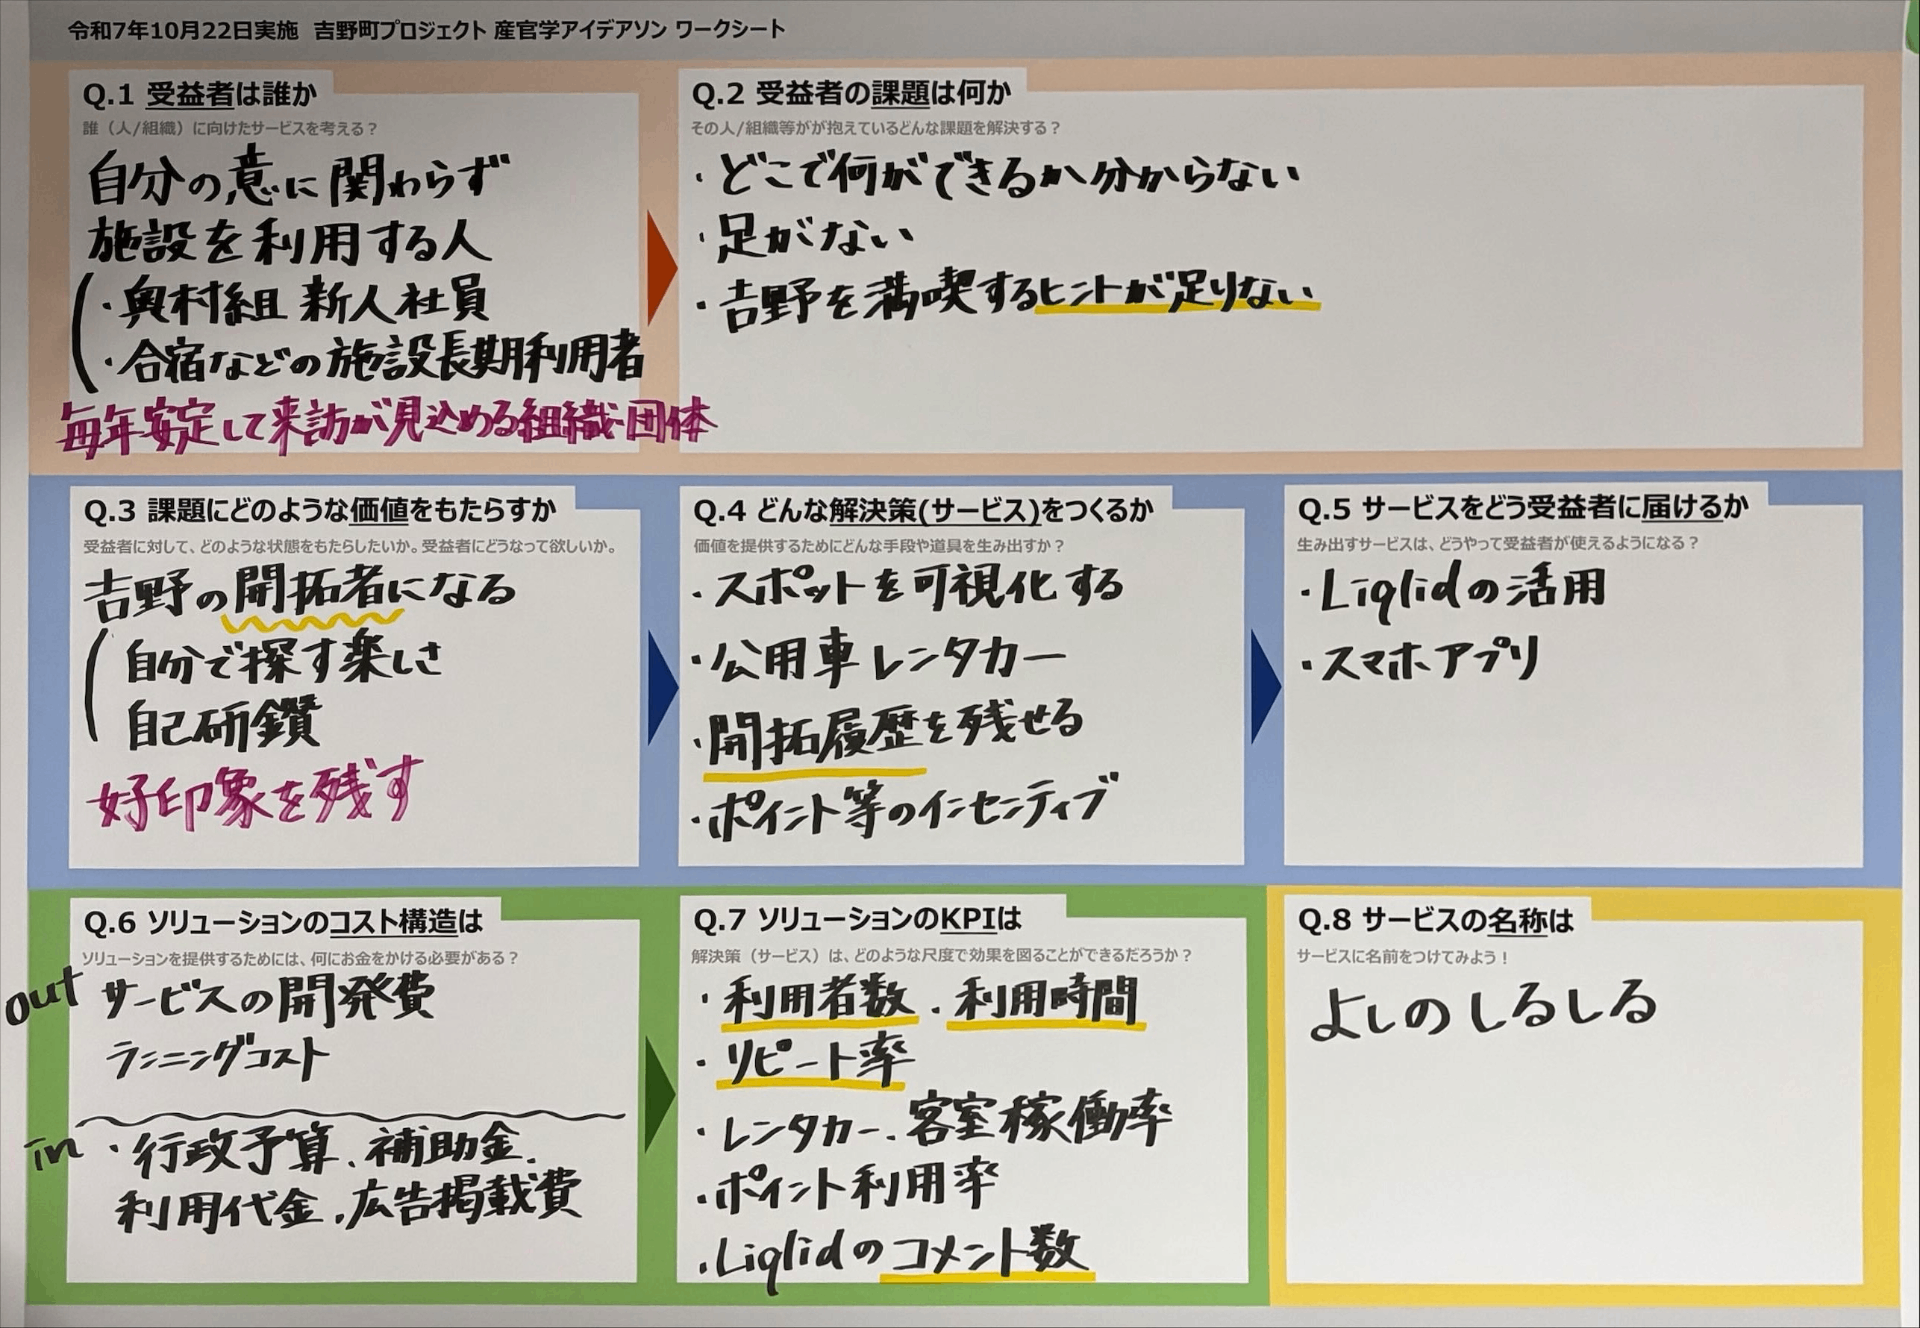 令和7年10月22日実施 吉野町プロジェクト 産官学アイデアソン ワークシート
Q.1 受益者は誰か
誰（人/組織）に向けたサービスを考える？
自分の意に関わらず
施設を利用する人
・奥村組 新人社員
・合宿などの施設長期利用者
毎年安定して来訪が見込める組織・団体
Q.2 受益者の課題は何か
その人/組織等がが抱えているどんな課題を解決する？
・どこで何ができるか分からない
・足がない
・吉野を満喫するヒントが足りない
Q.3 課題にどのような価値をもたらすか
受益者に対して、どのような状態をもたらしたいか。受益者にどうなって欲しいか。
吉野の開拓者になる
自分で探す楽しさ
自己研鑽
好印象を残す
Q.4 どんな解決策(サービス)をつくるか
価値を提供するためにどんな手段や道具を生み出すか？
・スポットを可視化する
・公用車レンタカー
・開拓履歴を残せる
・ポイント等のインセンティブ
Q.5 サービスをどう受益者に届けるか
生み出すサービスは、どうやって受益者が使えるようになる？
・Liqlidの活用
・スマホアプリ
Q.6 ソリューションのコスト構造は
ソリューションを提供するためには、何にお金をかける必要がある？
out サービスの開発費
ランニングコスト
in ・行政予算、補助金、
利用代金、広告掲載費
Q.7 ソリューションのKPIは
解決策（サービス）は、どのような尺度で効果を図ることができるだろうか？
・利用者数 ・利用時間
・リピート率
・レンタカー、客室稼働率
・ポイント利用率
・Liqlidのコメント数
Q.8 サービスの名称は
サービスに名前をつけてみよう！
よしのしるしる